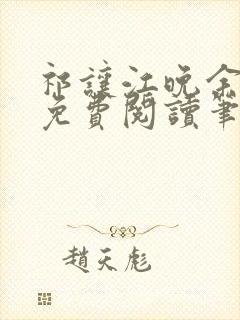 祁讓江晚余
免費閱讀筆
趙天彪